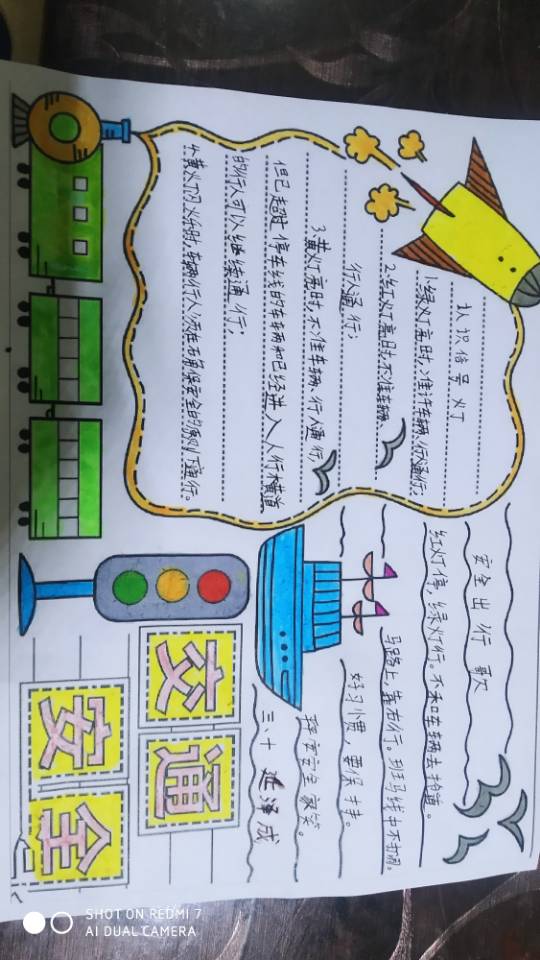 认识信号灯
1.绿灯亮时,准许车辆、行人通行;
2.红灯亮时,不准车辆、
行人通行;
3.黄灯亮时,不准车辆、行人通行
但已超过停车线的车车辆和已经进入人行横道
的行人可以继续通行;
4.黄灯闪烁时,车辆行人须在确保安全的原则下通行。
安全出行歌
红灯停,绿灯行。不和车辆去抢道。
马路上,靠右行。斑马线中不打闹。
好习惯,要保持。
家笑。
三、十 延泽成
交通
安全
SHOT ON REDMI 7
AI DUAL CAMERA